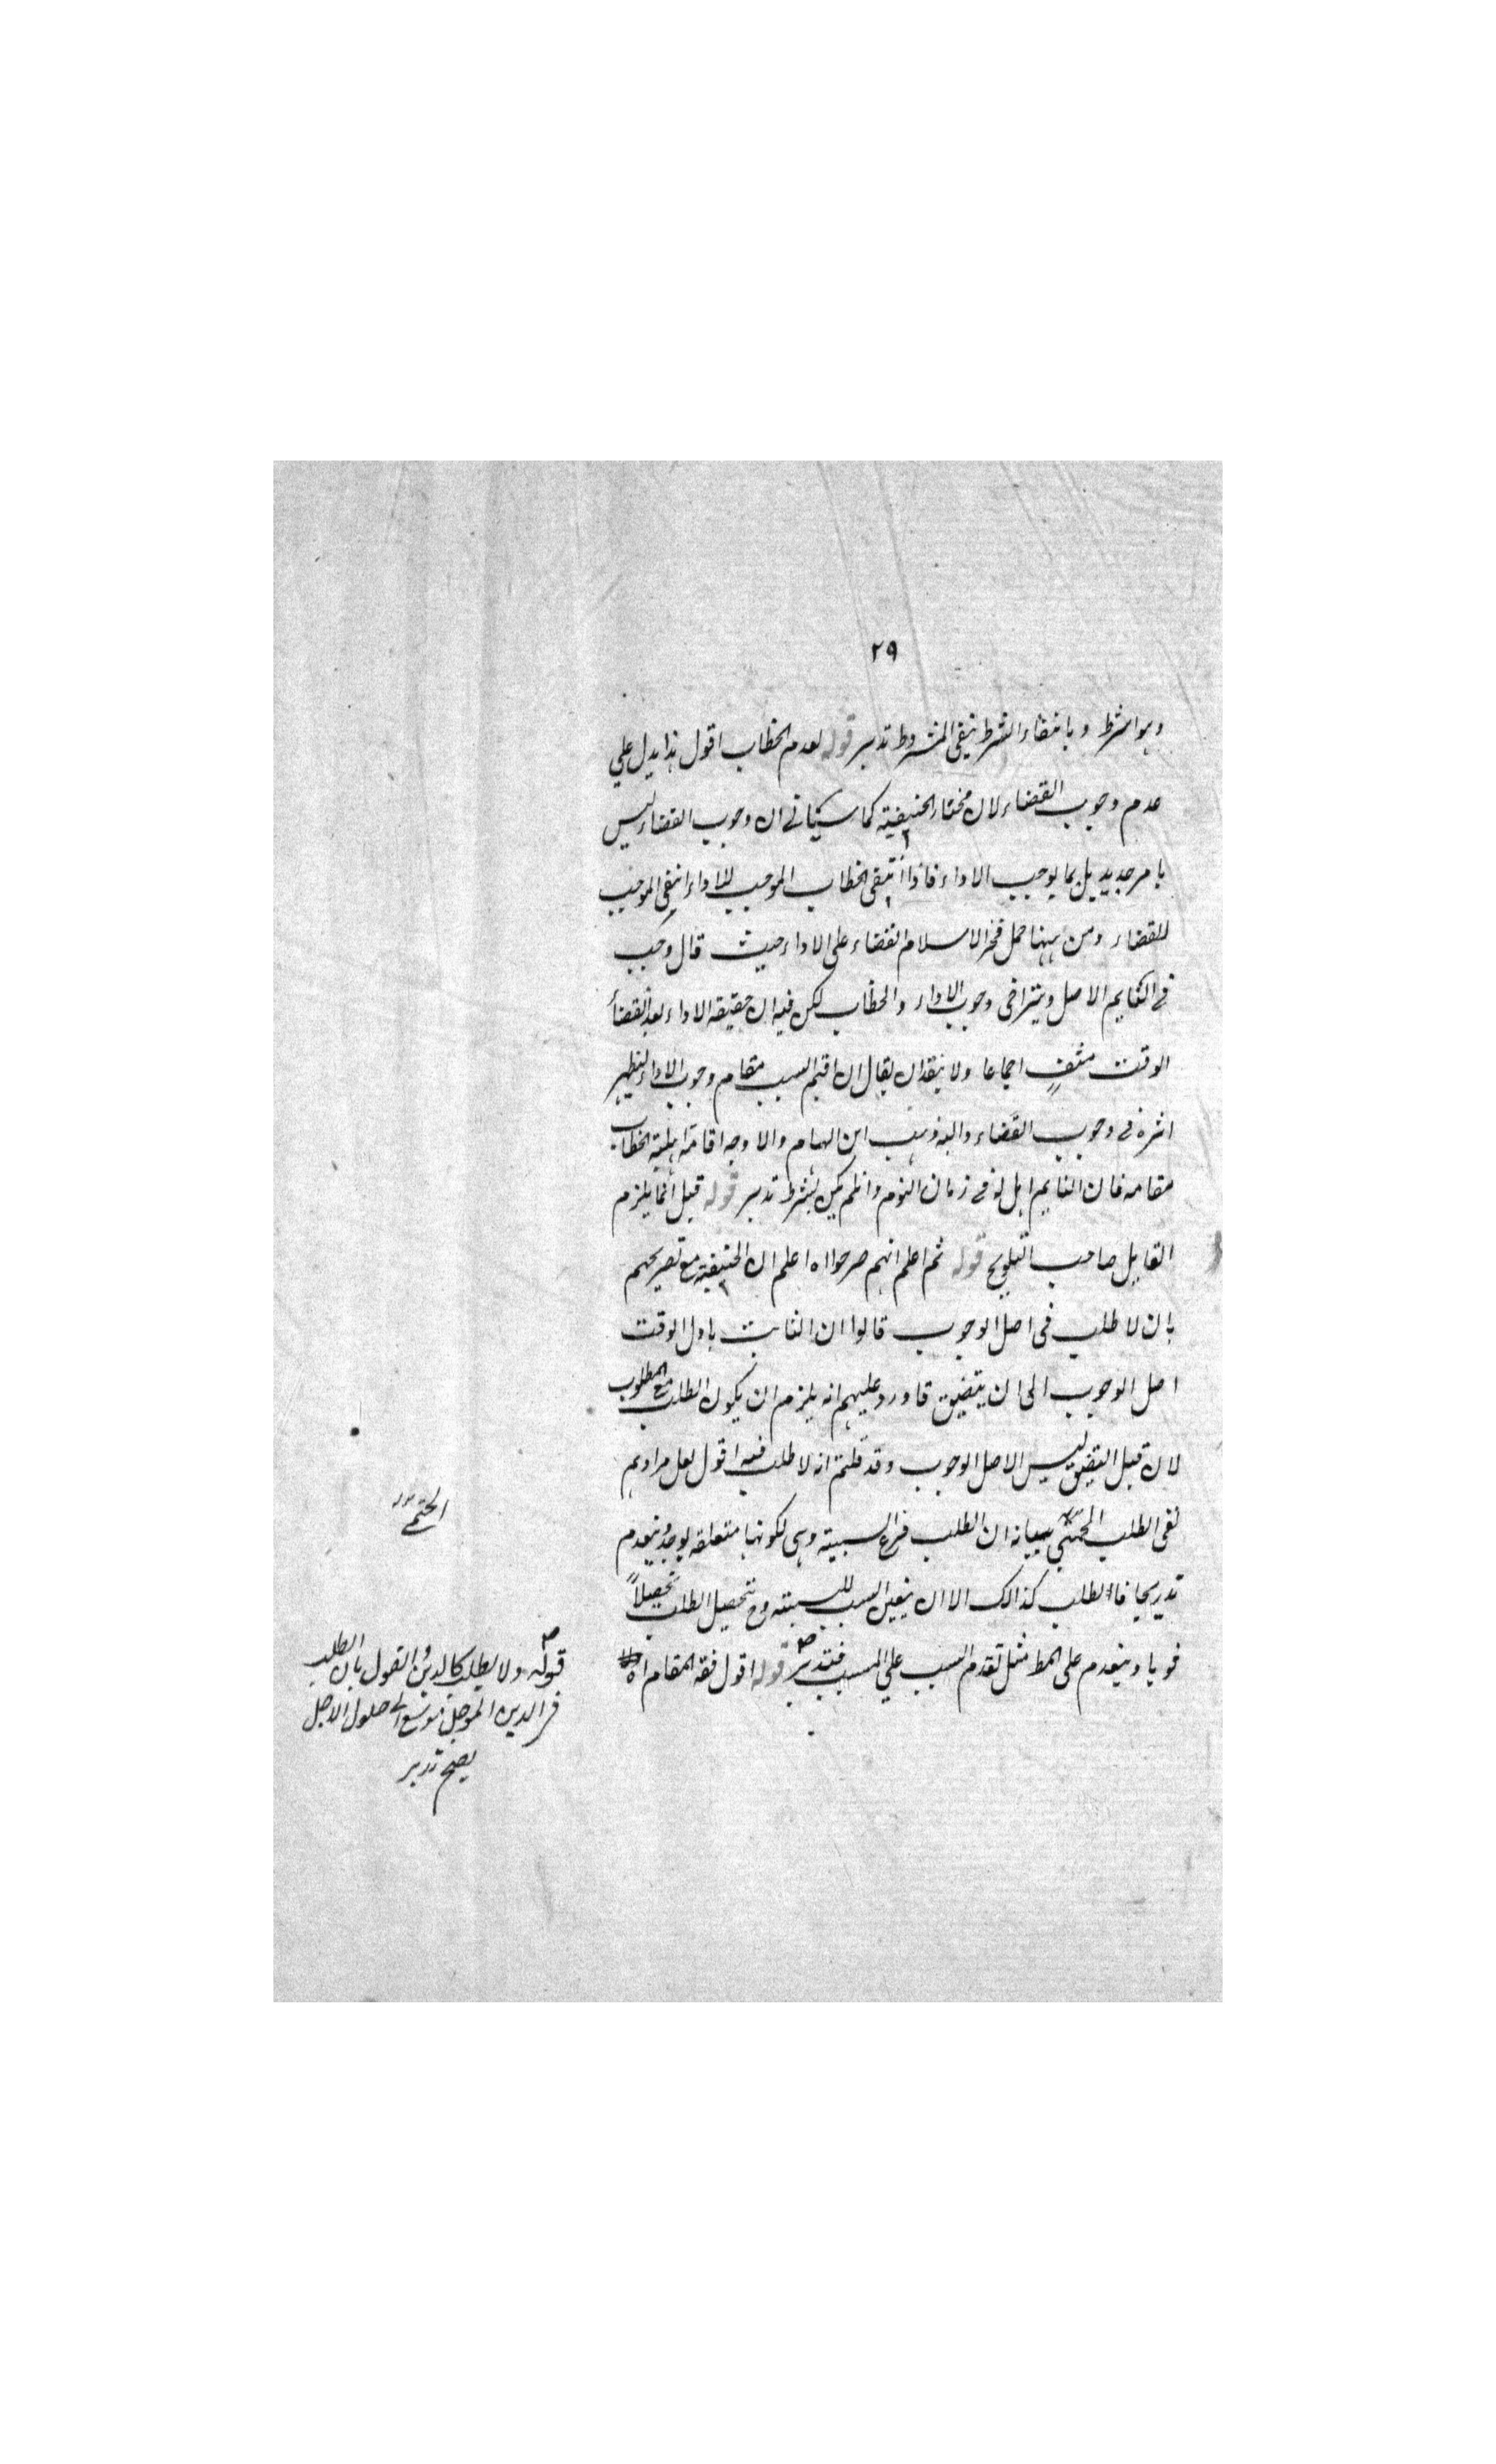 ٢٩
وهو الشرط وبانتفاء الشرط ينتفي المشروط تدبر قوله لعدم الخطاب اقول هذا يدل علي
عدم وجوب القضاء لان مختار الحنيفية كما سيأتي ان وجوب القضاء ليس
بامر جديد بل بما يوجب الاداء فاذا انتفى الخطاب الموجب للاداء انتفى الموجب
للقضاء ومن ههنا حمل فخر الاسلام القضاء على الاداء حيث قال وجب
في النايم الاصل ويتراخى وجوب الاداء والخطاب لكن فيه ان حقيقة الاداء بعد انقضاء
الوقت منتف اجماعا ولا يبعد ان يقال ان اقيم السبب مقام وجوب الاداء ليظهر
اثره في وجوب القضاء واليه ذهب ابن الهمام والاوجه اقامة اهلية الخطاب
مقامه فان النايم اهل له في زمان النوم وان لم يكن بشرط تدبر قوله قيل انما يلزم
القايل صاحب التلويح قوله ثم اعلم انهم صرحوا اه اعلم ان الحنيفية مع تصريحهم
بان لا طلب في اصل الوجوب قالوا ان الثابت باول الوقت
اصل الوجوب الى ان يتضيق فاورد عليهم انه يلزم ان يكون الطلب مع المطلوب
لان قبل التضيق ليس الا اصل الوجوب وقد قلتم انه لا طلب فيه اقول لعل مرادهم
نفى الطلب الحتمي بيانه ان الطلب فرع السببية وهى لكونها متعلقة يوجد وينعدم
تدريجا فالطلب كذالك الا ان يتعين السبب للسببية وح يتحصل الطلب تحصيلاً
قويا ويتقدم على المط مثل تقدم السبب علي المسبب فتدبر قوله اقول فقه المقام اه
الحتمي
قوله ولا يطلب كالدين والقول بان الطلب
في الدين المؤجل موسع الى حلول الاجل
يصح تدبر